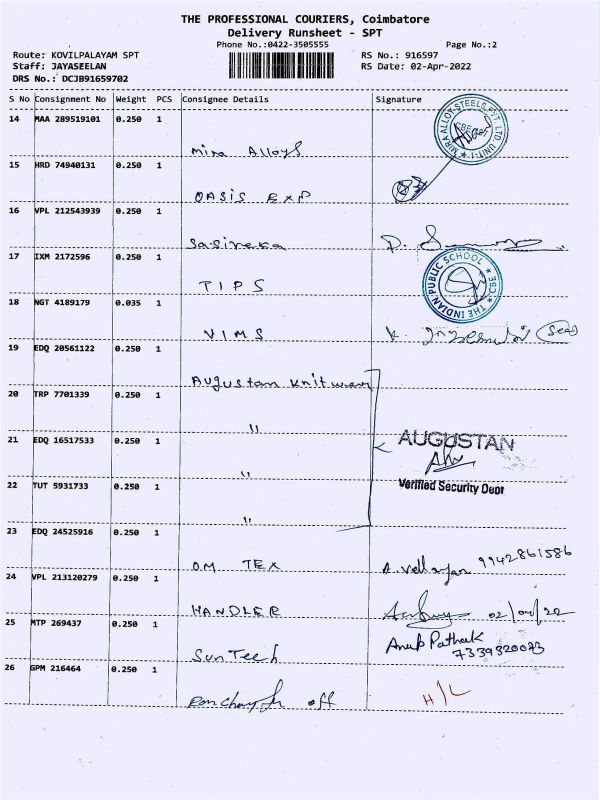 THE PROFESSIONAL COURIERS, Coimbatore
Delivery Runsheet - SPT
Phone No.:0422-3505555 Page No.:2
Route: KOVILPALAYAM SPT RS No.: 916597
Staff: JAYASEELAN RS Date: 02-Apr-2022
DRS No.: DCJB91659702
S No Consignment No Weight PCS Consignee Details Signature
14 MAA 289519101 0.250 1
Mira Alloys
MIRA ALLOY STEELS PVT. LTD. UNIT-I
15 HRD 74940131 0.250 1
OASIS EXP
16 VPL 212543939 0.250 1
Sasireka
17 IXM 2172596 0.250 1
TIPS
THE INDIAN PUBLIC SCHOOL ★ CBE ★
18 NGT 4189179 0.035 1
VIMS
19 EDQ 20561122 0.250 1
Augustan Knitwear
20 TRP 7701339 0.250 1
"
21 EDQ 16517533 0.250 1
"
AUGUSTAN
22 TUT 5931733 0.250 1
"
Verified Security Dept
23 EDQ 24525916 0.250 1
OM TEX A. Vellayan 9942861586
24 VPL 213120279 0.250 1
HANDLER 02/04/22
25 MTP 269437 0.250 1
SunTech Anup Pathak
7339320073
26 GPM 216464 0.250 1
off H/L